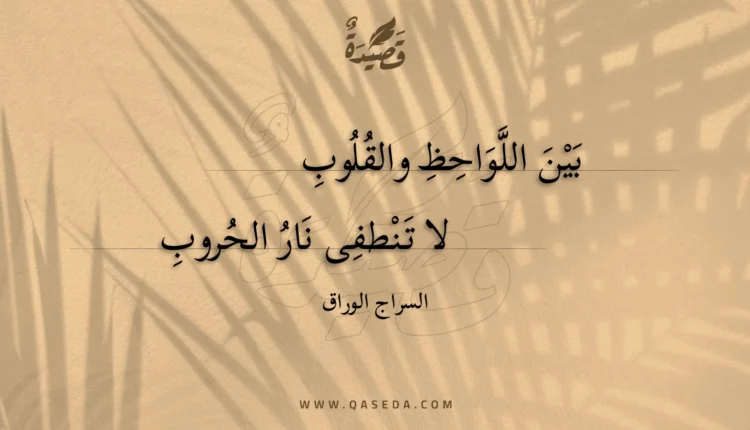 قَصِيْدَةٌ
بَيْنَ اللَّوَاحِظِ والقُلُوبِ
لا تَنْطفِى نَارُ الحُروبِ
السراج الوراق
WWW.QASEDA.COM